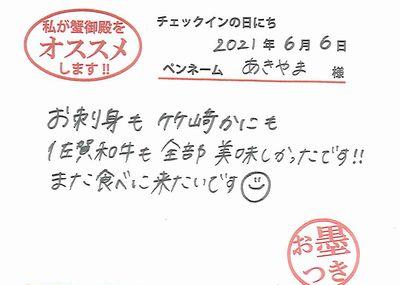 私が蟹御殿を
オススメ
します!!
チェックインの日にち
2021年6月6日
ペンネーム あきやま 様
お刺身も 竹崎かにも
佐賀和牛も 全部 美味しかったです!!
また食べに来たいです
お墨
つき